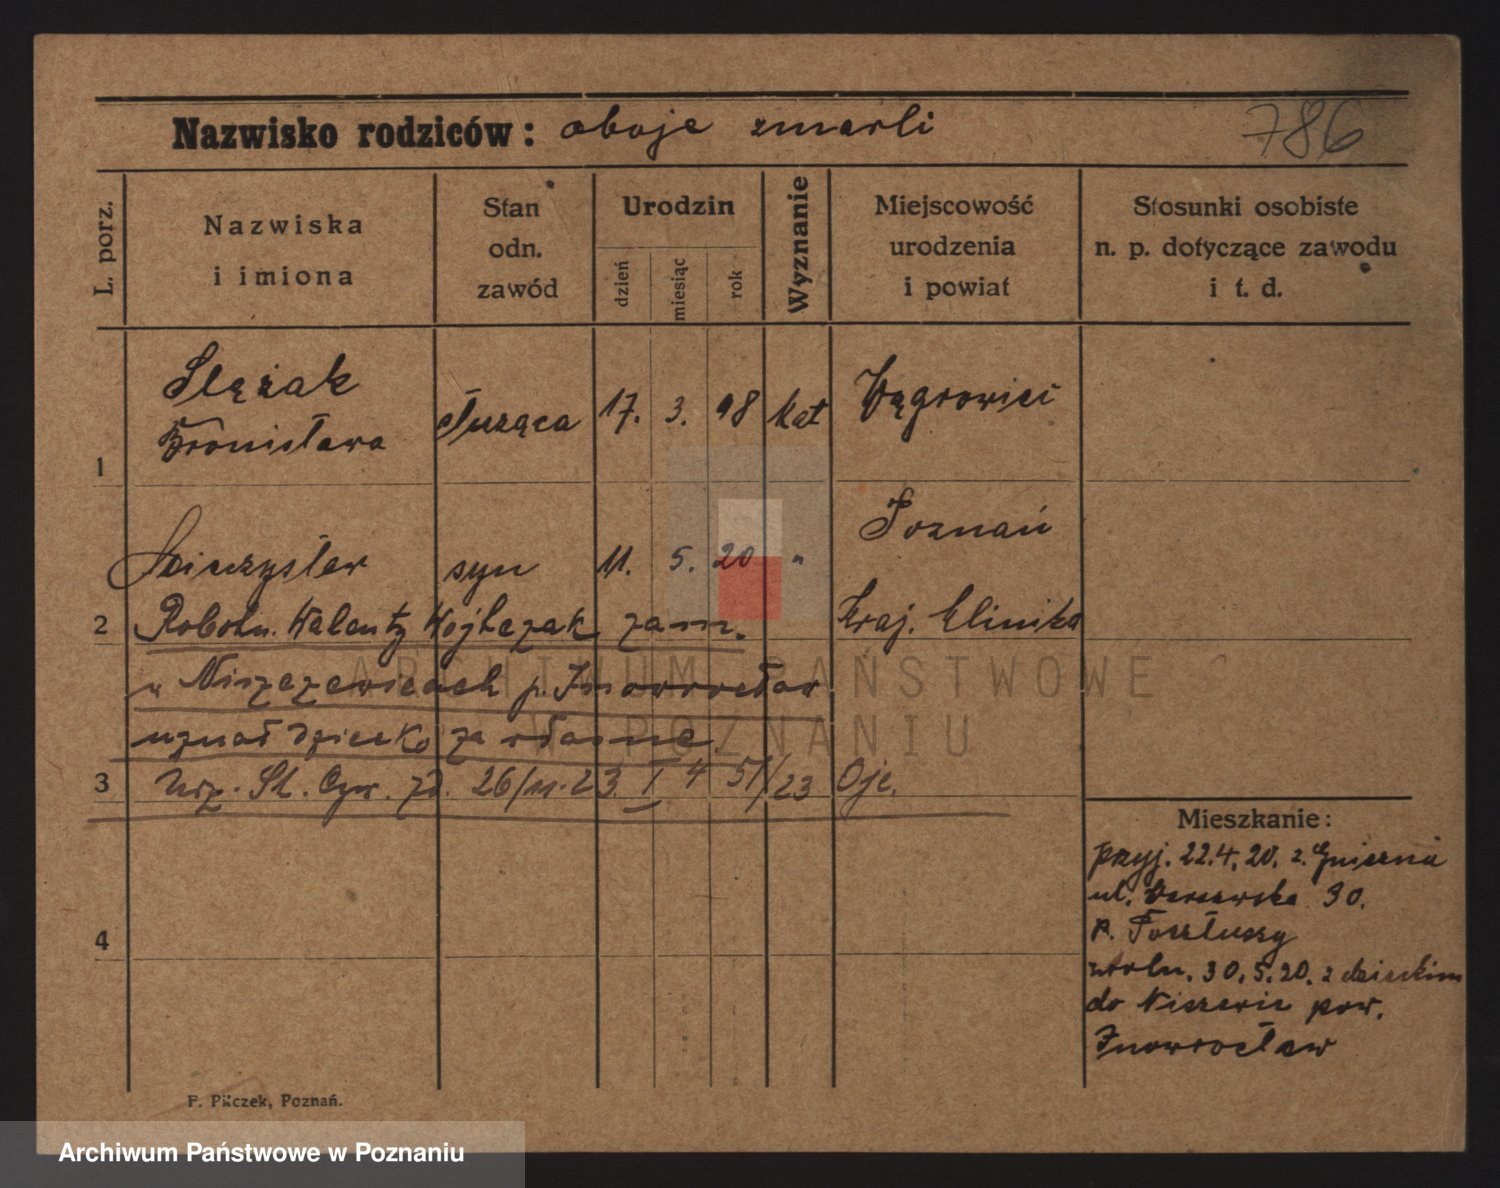 Nazwisko rodziców: oboje zmarli
786
L. porz.
Nazwiska
i imiona
Stan
odn.
zawód
Urodzin
dzień
miesiąc
rok
Wyznanie
Miejscowość
urodzenia
i powiat
Stosunki osobiste
n. p. dotyczące zawodu
i t. d.
1
Ślęzak
Bronisława
służąca
17. 3. 98
kat
Wągrowiec
2
Mieczysław
syn
11. 5. 20 "
Poznań
Kraj. Klinika
Robotn. Walenty Wojtczak zam.
w Niszczewicach p. Inowrocław
uznał dziecko za własne
3
Urz. St. Cyw. 26/11.23. I 4 51/23
4
Mieszkanie:
przyj. 22.4.20. z Gniezna
ul. Warszawska 30.
p.
30.5.20. z dzieckiem
do Niszewic pow.
Inowrocław
F. Pilczek, Poznań.
ARCHIWUM PAŃSTWOWE
W POZNANIU
Archiwum Państwowe w Poznaniu